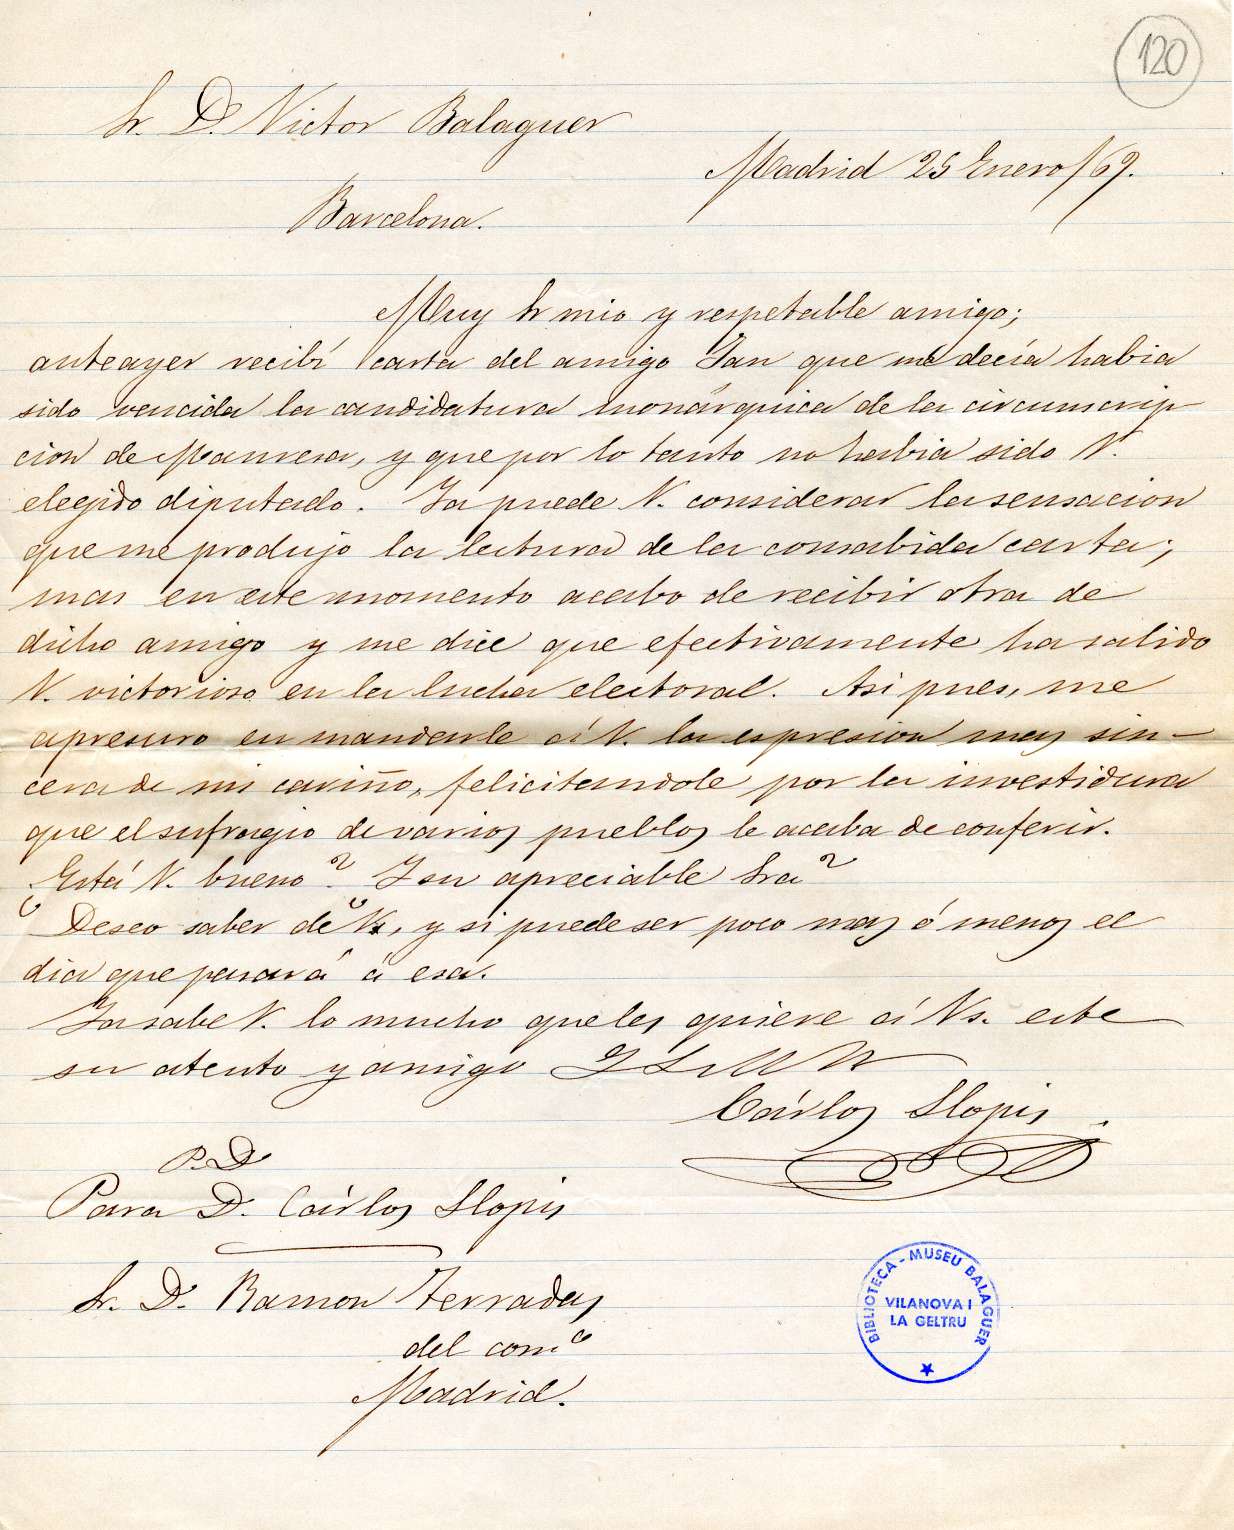 120
Sr. D. Victor Balaguer
Madrid 25 Enero/69.
Barcelona.
Muy Sr mio y respetable amigo;
anteayer recibí carta del amigo Jan que me decía habia
sido vencida la candidatura monárquica de la circunscrip
cion de Manresa, y que por lo tanto no habia sido V.
elegido diputado. Ya puede V. considerar la sensacion
que me produjo la lectura de la consabida carta;
mas en este momento acabo de recibir otra de
dicho amigo y me dice que efectivamente ha salido
V. victorioso en la lucha electoral. Asi pues, me
apresuro en mandarle á V. la espresion mas sin-
cera de mi cariño, felicitandole por la investidura
que el sufragio de varios pueblos le acaba de conferir.
¿Está V. bueno? ¿Y su apreciable Sra?
Deseo saber de Vs, y si puede ser poco mas ó menos el
dia que pasará á esa.
Ya sabe V. lo mucho que les quiere á Vs. este
su atento y amigo
Cárlos Llopis
P.D
Para D. Cárlos Llopis
Sr. D. Ramon Terradas
del como
Madrid.
BIBLIOTECA - MUSEU BALAGUER
VILANOVA I
LA GELTRU